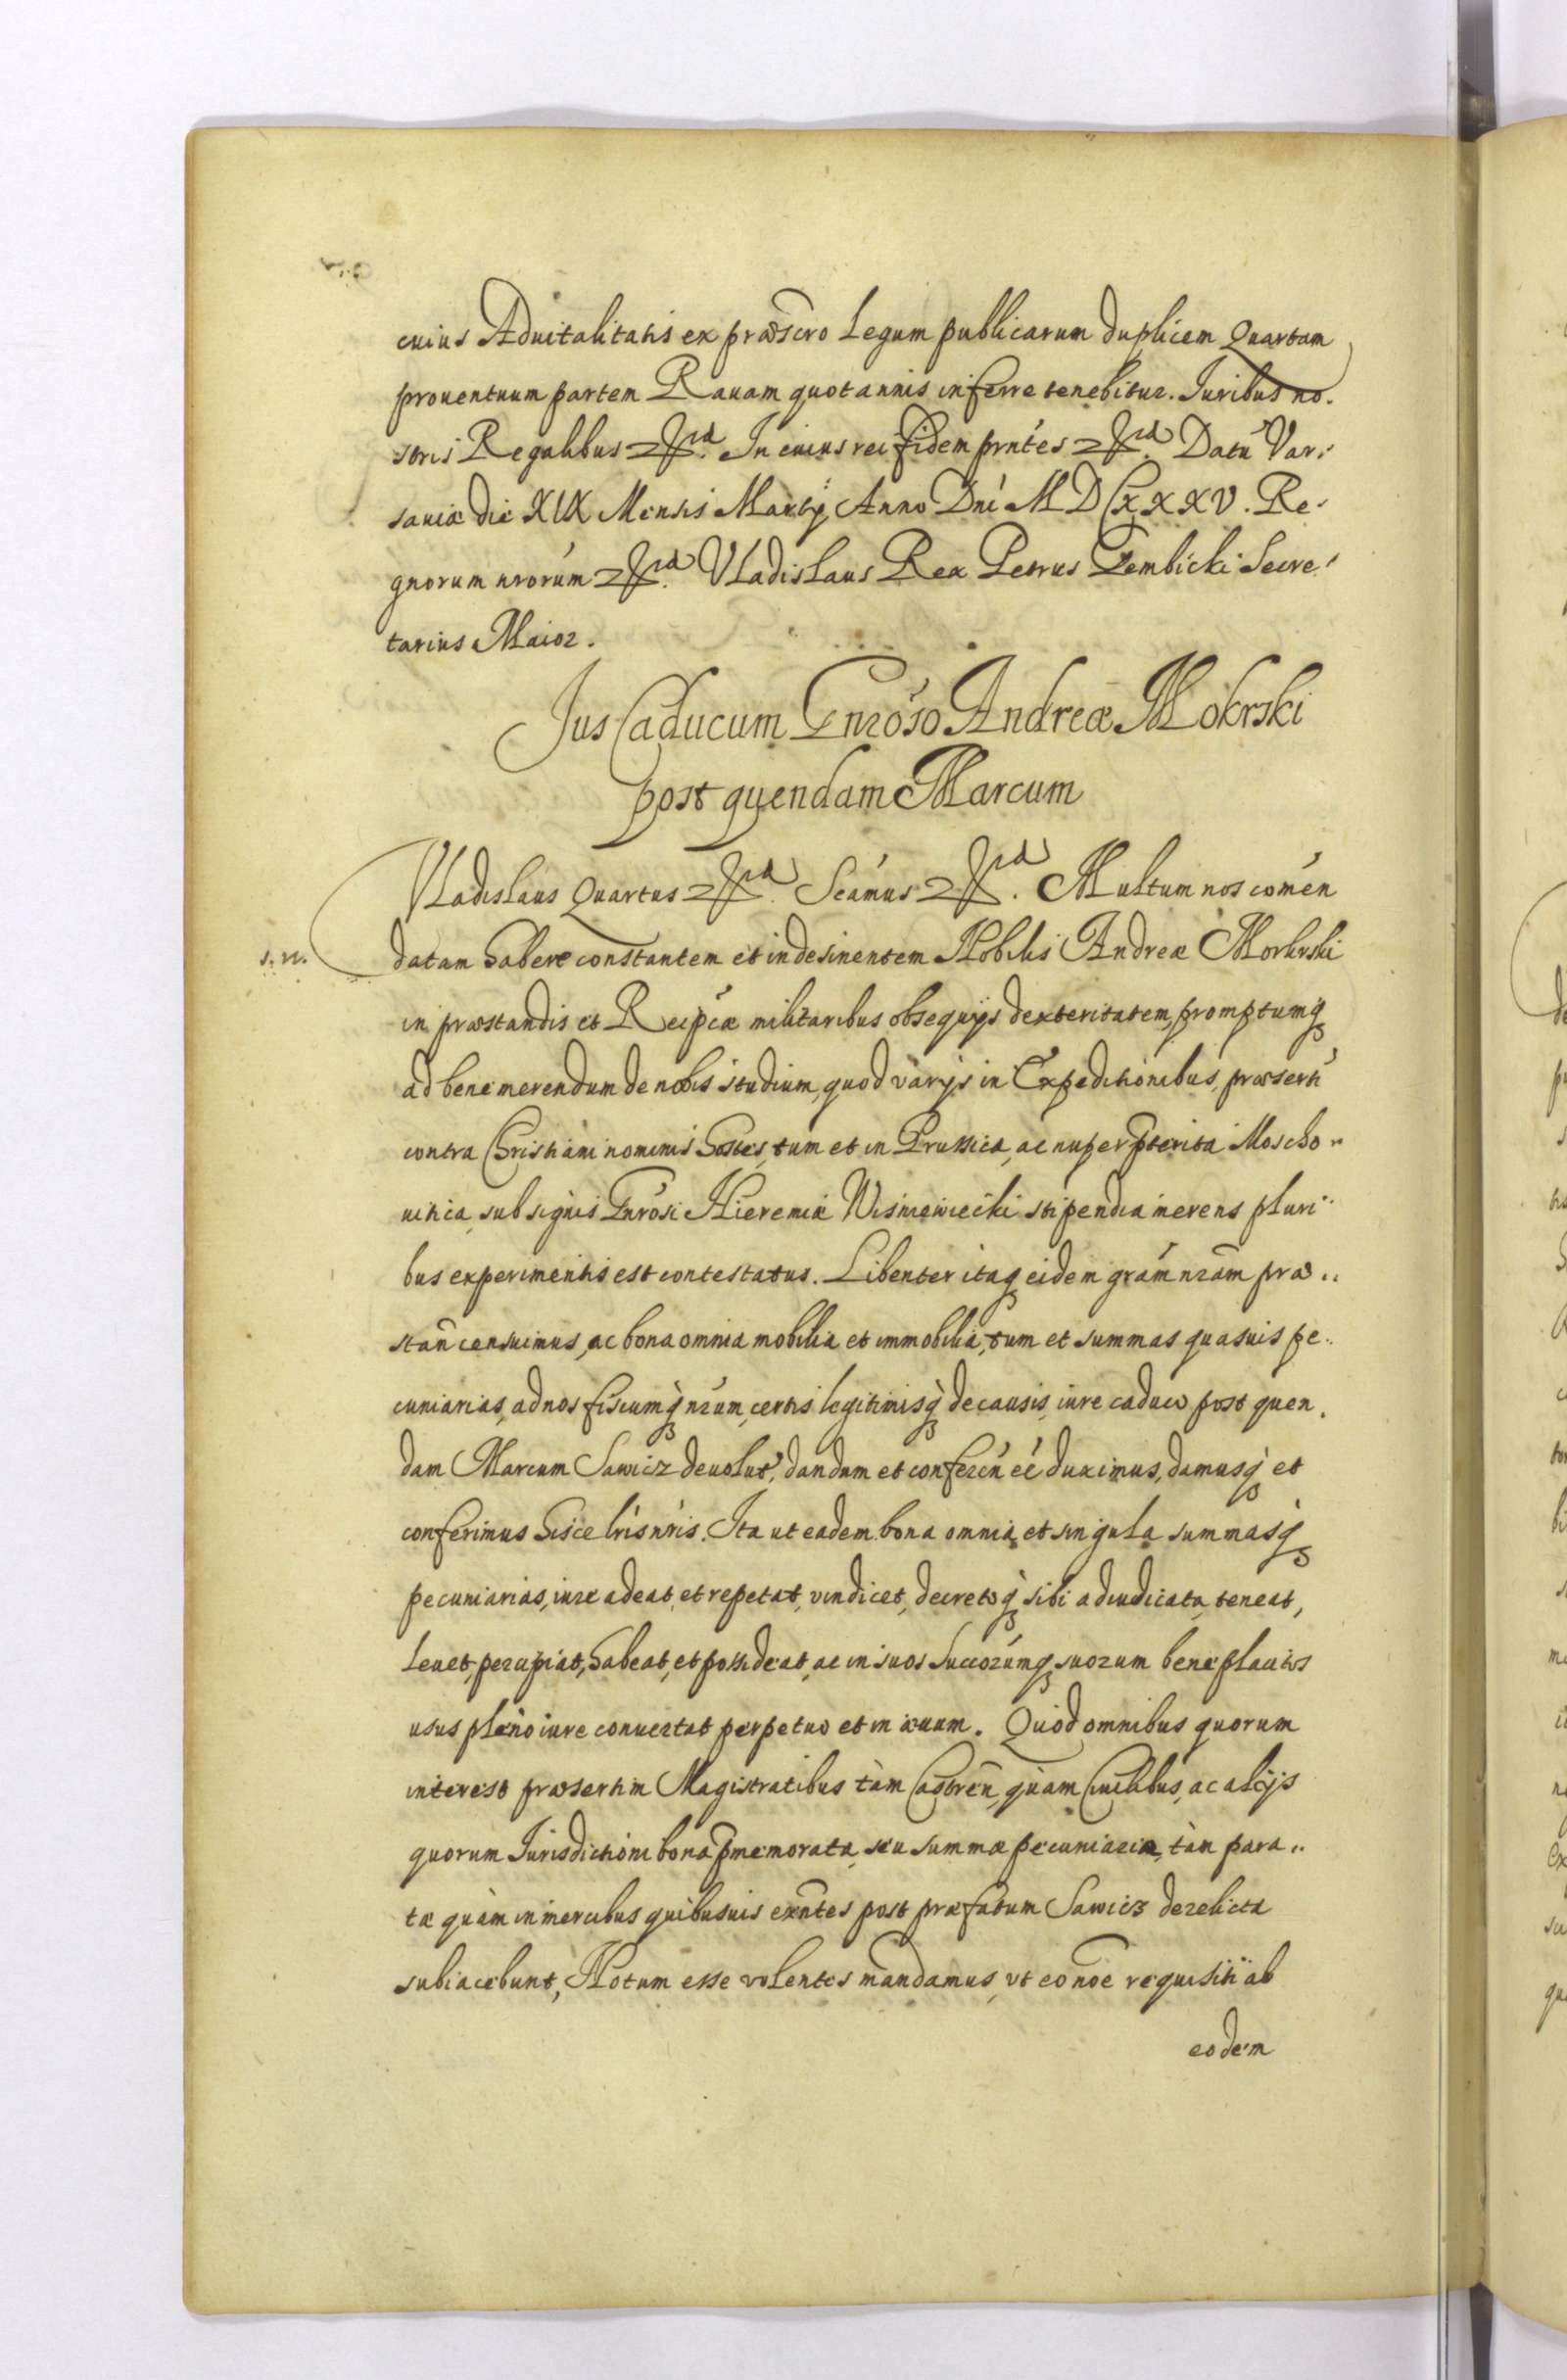 cuius Aduitalitatis ex præscro Legum publicarum duplicem Quartam
prouentuum partem Rauam quotannis inferre tenebitur. Iuribus no.
stris Regalibus &rd. In cuius rei fidem prńtes &rd. Datũ Var:
sauiæ die XIX Mensis Martij Anno Dnĩ MDCXXXV. Re:
gnorum nrorúm &rd. Vladislaus Rex Petrus Gembicki Secre:
tarius Maior.
Jus Caducum Gnróso Andreæ Mokrski
post quendam Marcum
Vladislaus Quartus &rd. Scámus &rd. Multum nos comén
s. n.
datam habere constantem et indesinentem Nobilis Andreæ Morkrski
in præstandis et Reipcæ militaribus obsequijs dexteritatem, promptumq
ad bene merendum de nobis studium, quod varijs in Expeditionibus, præsertĩ
contra Christiani nominis hostes, tum et in Prussica, ac nuper pterita Moscho
uitica, sub signis Gnrósi Hieremiæ Wisniewiecki stipendia merens pluri
bus experimentis est contestatus. Libenter itaq eidem grám nram præ..
stañ censuimus, ac bona omnia mobilia et immobilia, tum et summas quasuis pe..
cuniarias, ad nos fiscumq nrum, certis legitimisq de causis, iure caduco post quen.
dam Marcum Sawicz deuolut, dandum et conferén eé duximus, damusq et
conferimus hisce lris nris. Ita ut eadem bona omnia et singula summasq
pecuniarias, iure adeat, et repetat, vindicet, decretoq sibi adiudicata, teneat,
Leuet, percipiat, habeat, et possideat, ac in suos Succorúmq suorum beneplacitos
usus pleno iure conuertat perpetuo et in æuum. Quod omnibus quorum
interest præsertim Magistratibus tàm Castreñ, quàm Ciuilibus, ac alijs
quorum Jurisdictioni bona pmemorata, seu summæ pecuniariæ, tàm para..
tæ quàm in mercibus quibusuis exñtes post præfatum Sawicz derelicta
subiacebunt, Notum esse volentes mandamus, vt eo noe requisiti ab
eodem